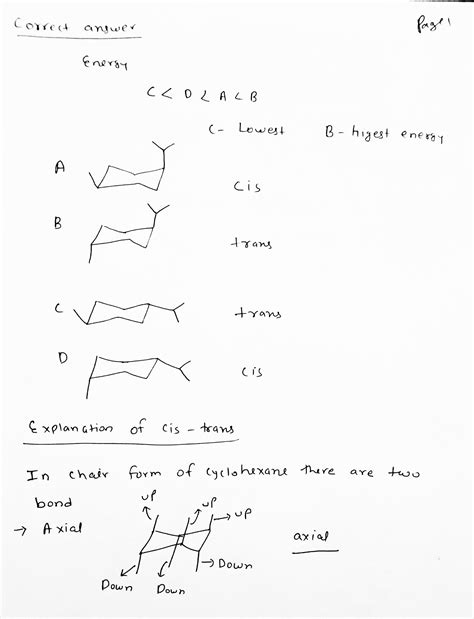 Correct answer
Page 1
Energy
C < D < A < B
C- Lowest
B- higest energy
A
cis
B
trans
C
trans
D
cis
Explanation of cis - trans
In chair form of cyclohexane there are two
bond
→ Axial
up
up
up
axial
Down
Down
Down